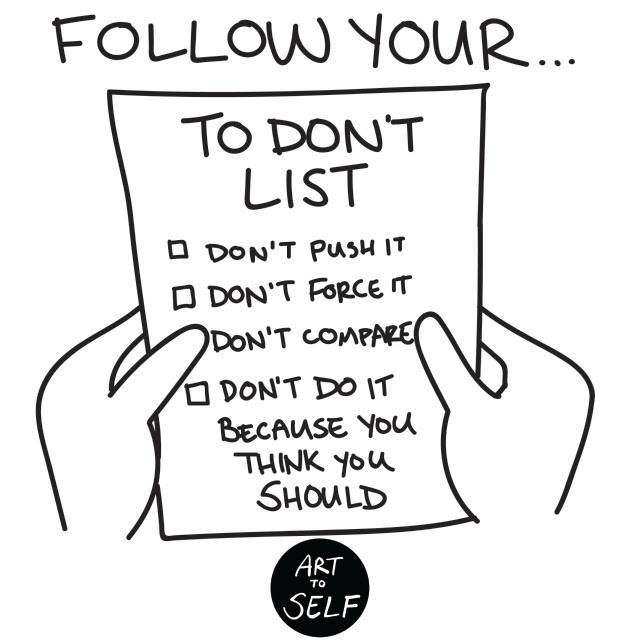 FOLLOW YOUR...
TO DON'T
LIST
DON'T PUSH IT
DON'T FORCE IT
DON'T COMPARE
DON'T DO IT
BECAUSE YOU
THINK YOU
SHOULD
ART
TO
SELF